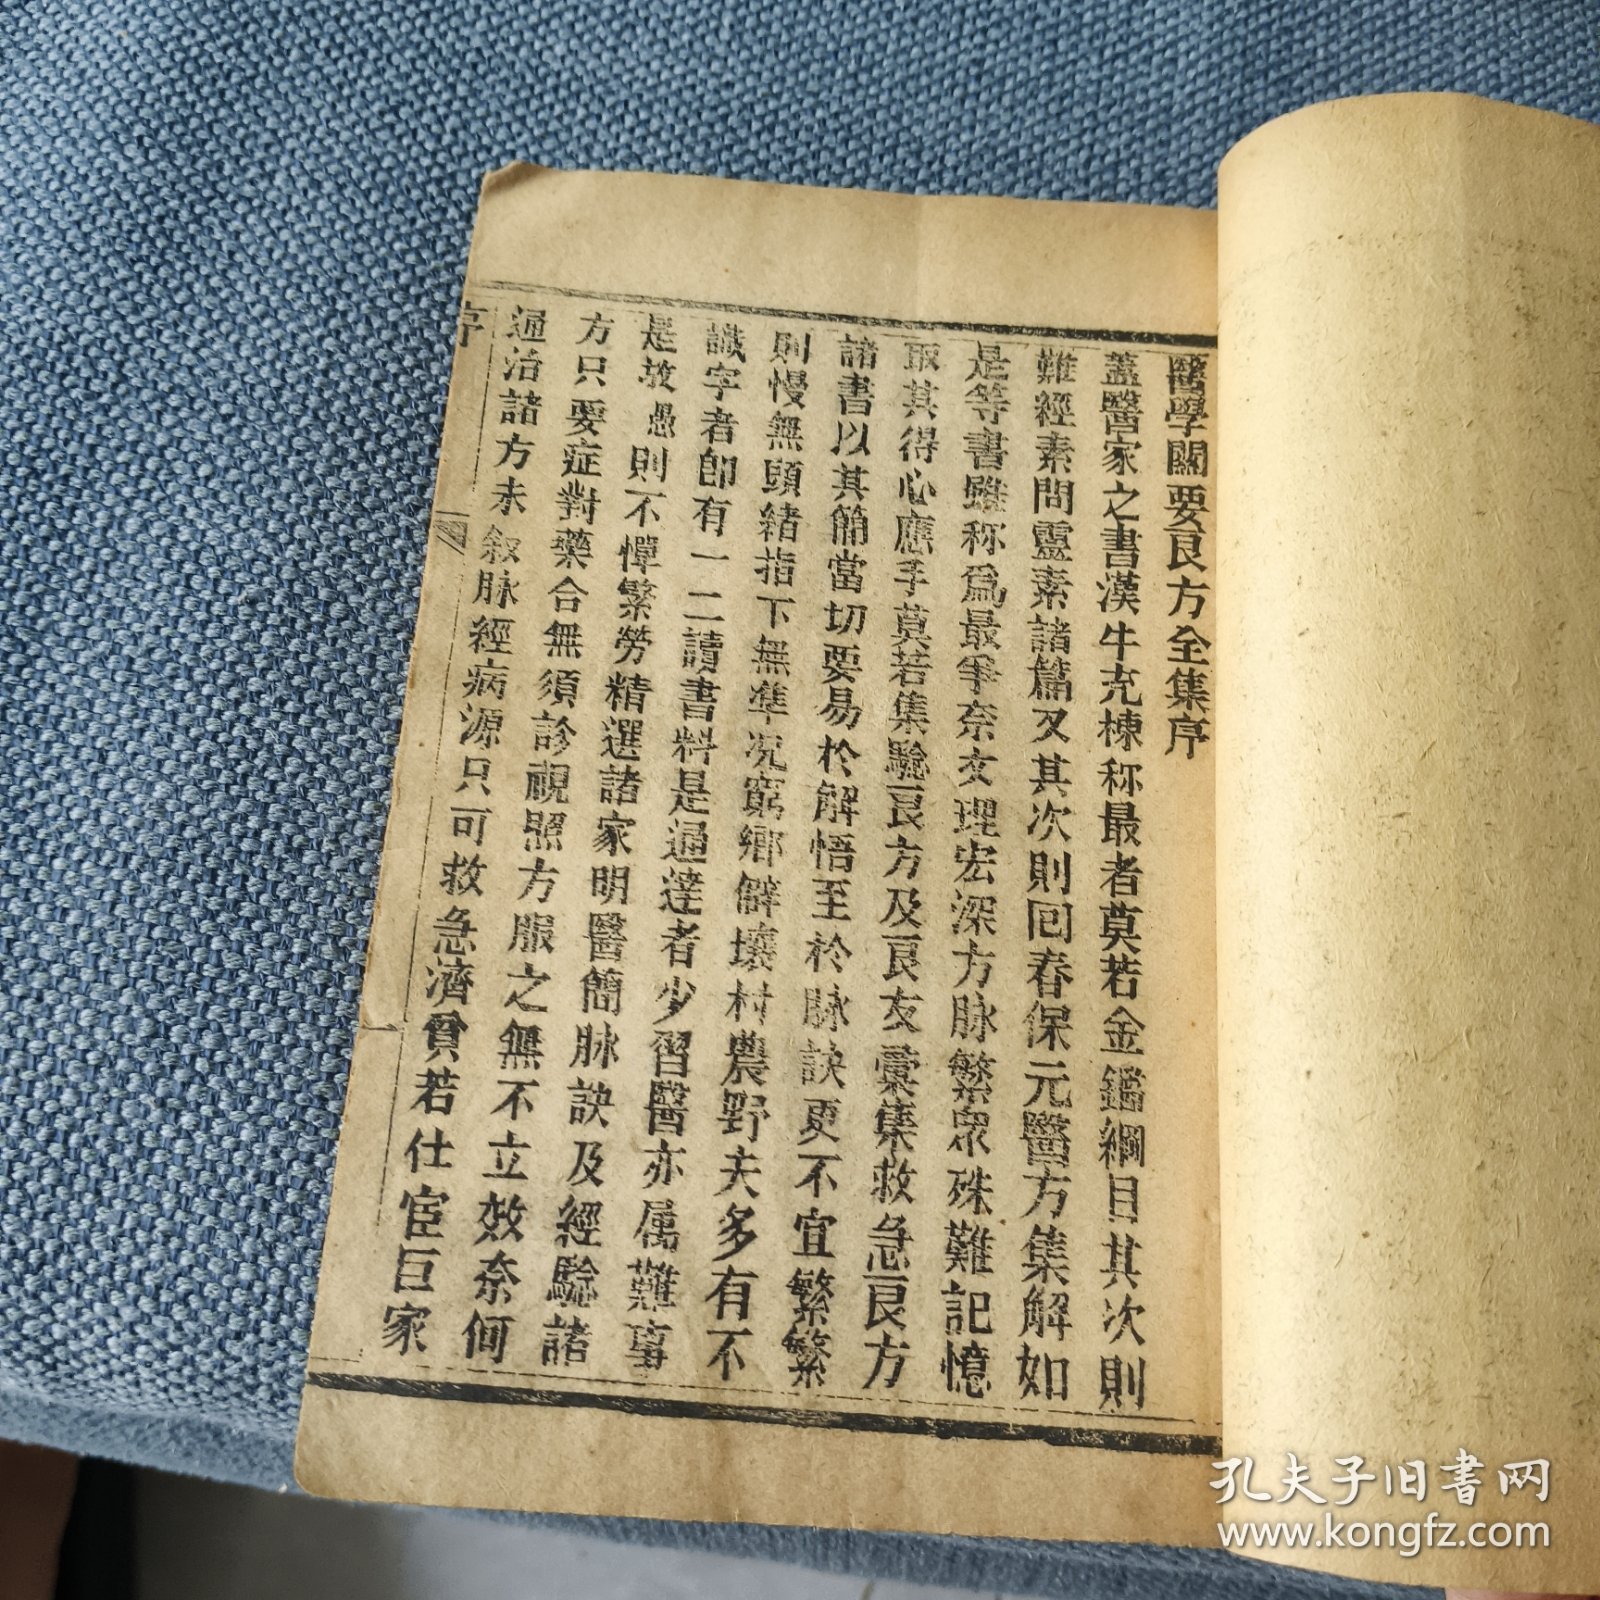 醫學關要良方全集序
蓋醫家之書漢牛充棟称最者莫若金鑑綱目其次則
難經素問靈素諸篇又其次則回春保元醫方集解如
是等書雖称為最爭奈文理宏深方脉繁眾殊難記憶
取其得心應手莫若集驗良方及良友彙集救急良方
諸書以其簡當切要易於解悟至於脉訣更不宜繁繁
則慢無頭緒指下無準况窮鄉僻壤村農野夫多有不
識字者卽有一二讀書料是通達者少習醫亦属難事
是故愚則不憚繁勞精選諸家明醫簡脉訣及經驗諸
方只要症對藥合無須診視照方服之無不立效奈何
通治諸方未叙脉經病源只可救急濟貧若仕宦巨家
序
孔夫子旧书网
www.kongfz.com